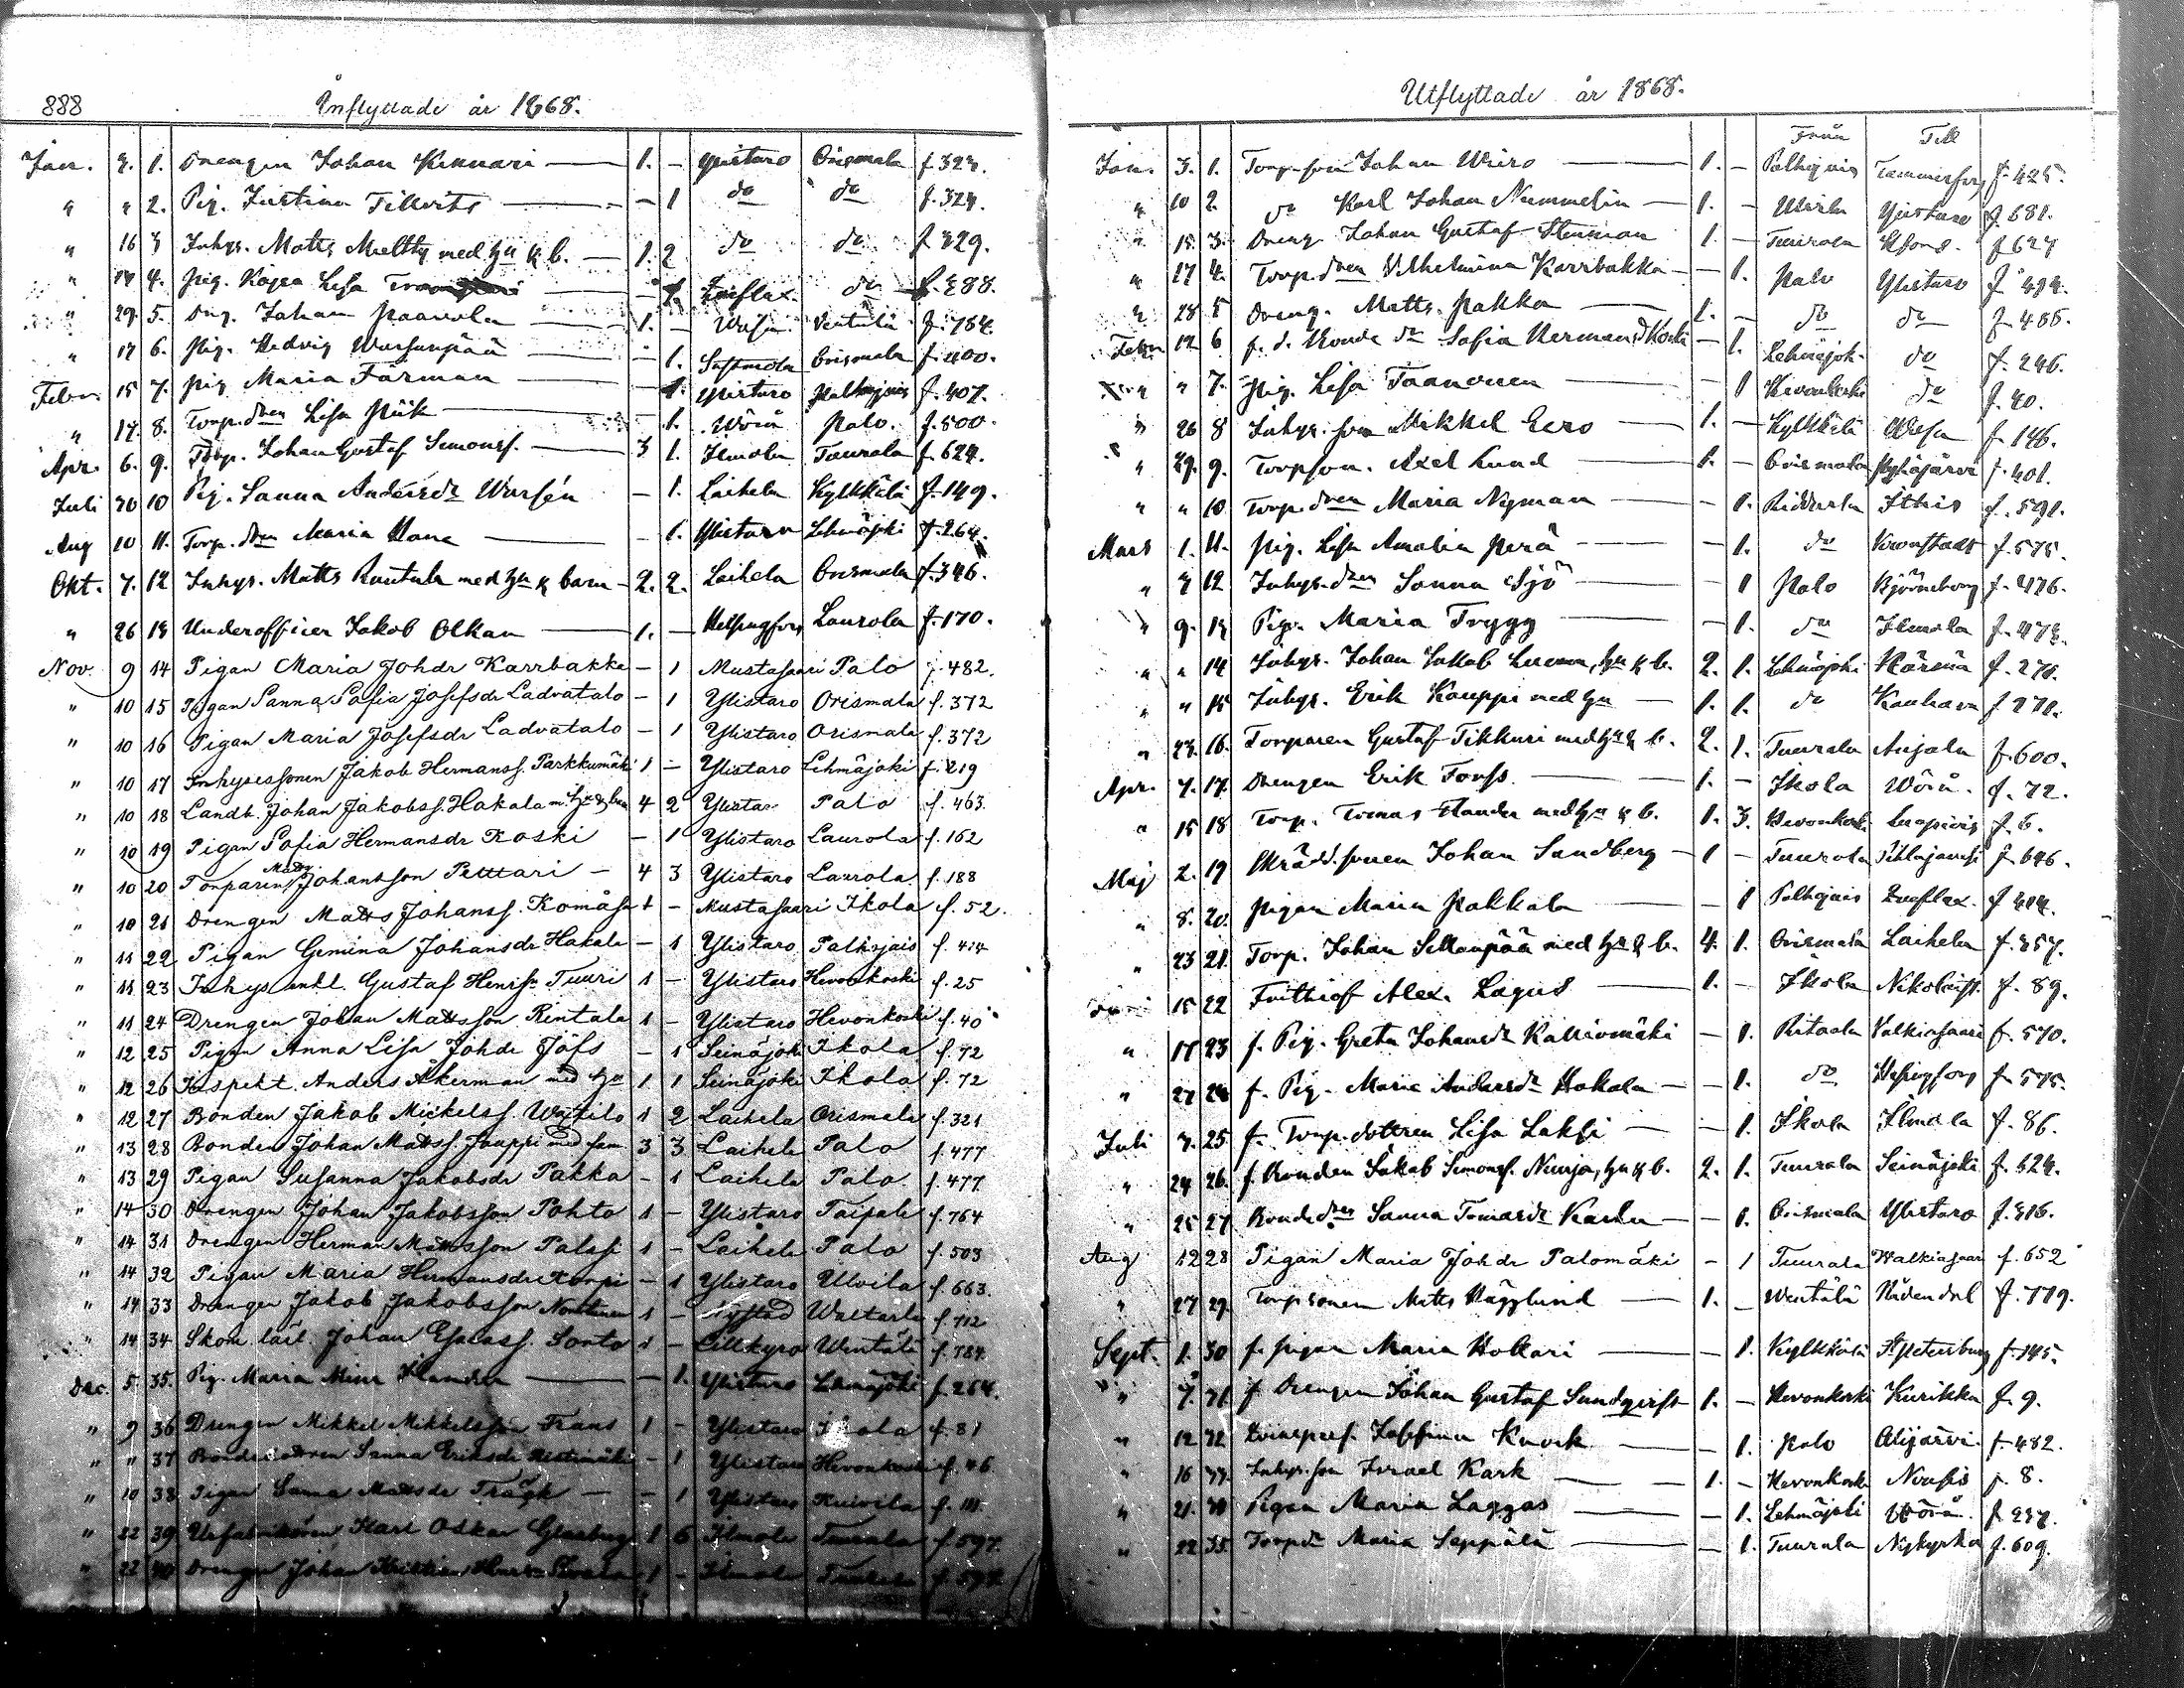 888 Inflyttade år 1868.
Jan. 3. 1. Drengen Johan Kinnari — 1. - Ylistaro Orismala f. 323.
" " 2. Pig. Justina Tillvits — - 1 do do f. 324.
" 16 3 Inhys. Matts Meltty med hu & b. — 1. 2 do do f. 329.
" 19 4. Pig. Kajsa Lisa — - 1. do f. 388.
" 29. 5. Dng. Johan Paavola — 1. - Wasa Ventälä f. 784.
" 17 6. Pig. Hedvig — - 1. Orismala f. 400.
Febr. 15 7. Pig Maria Färman — - 1. Ylistaro Palhojais f. 407.
" 17. 8. Torp. dren Lisa Piik — - 1. Wörå Palo. f. 500.
Apr. 6. 9. Torp. Johan Gustaf Simonss. — 3 1. Ilmola Tuurala f. 624.
Juli 20 10 Pig. Sanna Andersdr — - 1. Laihela Kylkkälä f. 149.
Aug 10 11. Torp. dren Maria — - 1. Ylistaro Lehmäjoki f. 264.
Okt. 7. 12 Inhys. Matts Rautula med hu & barn - 2. 2. Laihela Orismala f. 346.
" 26 13 Underofficer Jakob Olkan — 1. - Helsingfors Laurola f. 170.
Nov. 9 14 Pigan Maria Johdr Karrbakka - 1 Mustasaari Palo f. 482.
" 10 15 Pigan Sanna Sofia Josefsdr Ladvatalo - 1 Ylistaro Orismala f. 372
" 10 16 Pigan Maria Josefsdr Ladvatalo - 1 Ylistaro Orismala f. 372
" 10 17 Inhysessonen Jakob Hermanss. Parkkumäki 1 - Ylistaro Lehmäjoki f. 219
" 10 18 Landb. Johan Jakobss. Hakala m. hu & barn 4 2 Ylistaro Palo f. 463.
" 10 19 Pigan Sofia Hermansdr Koski - 1 Ylistaro Laurola f. 162
" 10 20 Torparen Matts Johansson Pettari - 4 3 Ylistaro Laurola f. 188
" 10 21 Drengen Matts Johanss. 1 - Mustasaari Ikola f. 52.
" 11 22 Pigan Gemina Johansdr Hakala - 1 Ylistaro Palhojais f. 414
" 11 23 Inhysenkl. Gustaf Henrss. Tuuri 1 - Ylistaro Hevonkoski f. 25
" 11 24 Drengen Johan Mattsson Rintala 1 - Ylistaro Hevonkoski f. 40
" 12 25 Pigan Anna Lisa Johdr Jofs - 1 Seinäjoki Ikola f. 72
" 12 26 Inspekt. Anders Åkerman med hu 1 1 Seinäjoki Ikola f. 72
" 12 27 Bonden Jakob Mickelss. 1 2 Laihela Orismala f. 321
" 13 28 Bonden Johan Mattss. Jouppi med fam 3 3 Laihela Palo f. 477
" 13 29 Pigan Susanna Jakobsdr Pakka - 1 Laihela Palo f. 477
" 14 30 Drengen Johan Jakobsson Pohto 1 - Ylistaro Taipale f. 764
" 14 31 Drengen Herman Mattsson 1 - Laihela Palo f. 503
" 14 32 Pigan Maria Hermansdr - 1 Ylistaro Ulvila f. 663.
" 14 33 Drengen Jakob Jakobsson 1 - Nystad f. 712
" 14 34 Skom. lärl. Johan Esaiass. Sonto 1 - Lillkyro Wentälä f. 784
Dec. 5 35. Pig. Maria — - 1. Ylistaro Lehmäjoki f. 264.
" 9 36 Drengen Mikkel Mikkelsson Frans 1 - Ylistaro Ikola f. 81
" " 37 Bondedottren Sanna Eriksdr - 1 Ylistaro Hevonkoski f. 46
" 10 38 Pigan Sanna Mattsdr — - 1 Ylistaro f. 111.
" 22 39 Urfabrikören Karl Oskar 1 6 Ilmola Tuurala f. 597.
" 22 40 Drengen Johan 1 - Ilmola Tuurala
Utflyttade år 1868.
Från Till
Jan. 3. 1. Torp. son Johan Wiiro — 1. - Palhojais Tammerfors f. 425.
" 10 2. do Karl Johan Nummelin — 1. - Ulvila Ylistaro f. 681.
" 15 3. Dreng Johan Gustaf Stenman 1. - Tuurala f. 627
" 17 4. Torp. dren Vilhelmina Karrbakka — - 1. Palo Ylistaro
" 28 5 Dreng. Matts Pakka — 1. - do do f. 485.
Febr. 12 6 f. d. Bonde dr Sofia Hermansd Koski - 1. Lehmäjok. do f. 246.
" " 7. Pig. Lisa Taanonen — - 1 Hevonkoski do f. 40.
" 26 8 Inhys. son Mikkel Eero — 1. - Kylkkälä Wasa f. 146.
" 29. 9. Torpson. Axel Lund — 1. - Orismala Pyhäjärvi f. 401.
" " 10 Torp. dren Maria Nyman — - 1. Ridderla Ithis f. 591.
Mars 1. 11. Pig. Lisa Amalia Perä — - 1. do Kronstadt f. 575.
" 3 12 Inhys. dren Sanna Sjö — - 1 Palo Björneborg f. 476.
" 9. 13 Pig. Maria Trygg — - 1. do Ilmola f. 473.
" " 14 Inhys. Johan Jakob Luoma, hu & b. 2. 1. Lehmäjoki Härmä f. 271.
" " 15 Inhys. Erik Kauppi med hu — 1. 1. do Kauhava f. 271.
" 23. 16. Torparen Gustaf Tikkuri med hu & b. 2. 1. Tuurala Anjala f. 600.
Apr. 7. 17. Drengen Erik Forss — 1. - Ikola Wörå. f. 72.
" 15 18 Torp. Tomas Hander med hu & b. 1. 3. Hevonkoski f. 6.
Maj 2. 19 Skrädd. sonen Johan Sandberg — 1 - Tuurala f. 646.
" 8. 20. Pigan Maria Pakkala — - 1 Palhojais
" 23 21. Torp. Johan Sillanpää med hu & b. 4. 1. Orismala Laihela f. 357.
15 22 Frithiof Alex. Lagus — 1. - Ikola Nikolaist. f. 89.
" 17 23 f. Pig. Greta Johansdr Kalliomäki — 1. Ritaala Valkiasaari f. 570.
" 27 24 f. Pig. Maria Andersdr Hakala — - 1. do Helsingfors f. 575.
Juli 3. 25 f. Torp. dottren Lisa Laksi — - 1. Ikola Ilmola f. 86.
" 24 26. f. Bonden Jakob Simonss. Nuuja, hu & b. 2. 1. Tuurala Seinäjoki f. 624.
" 25 27 Bondedren Sanna Tomasdr Karhu — - 1. Orismala Ylistaro f. 316.
Aug 12 28 Pigan Maria Johdr Palomäki - 1 Tuurala Walkiasaari f. 652
" 27 29. Torpsonen Matts Hägglund — 1. - Wentälä Nådendal f. 779.
Sept. 1. 30 f. pigan Maria Hollari — - 1. Kylkkälä St Petersburg f. 145.
" 7. 31 f Drengen Johan Gustaf Sundqvist 1. - Hevonkoski Kurikka f. 9.
" 12 32 Josefina Knock — - 1. Palo Alijärvi f. 482.
" 16 33. Inhys. son Israel Kark — 1. - Hevonkoski Nousis f. 8.
" 21. 34 Pigan Maria Laggas — - 1. Lehmäjoki Wörå. f. 237.
" 22 35. Torpdr Maria Seppälä — - 1. Tuurala Nykyrka f. 609.